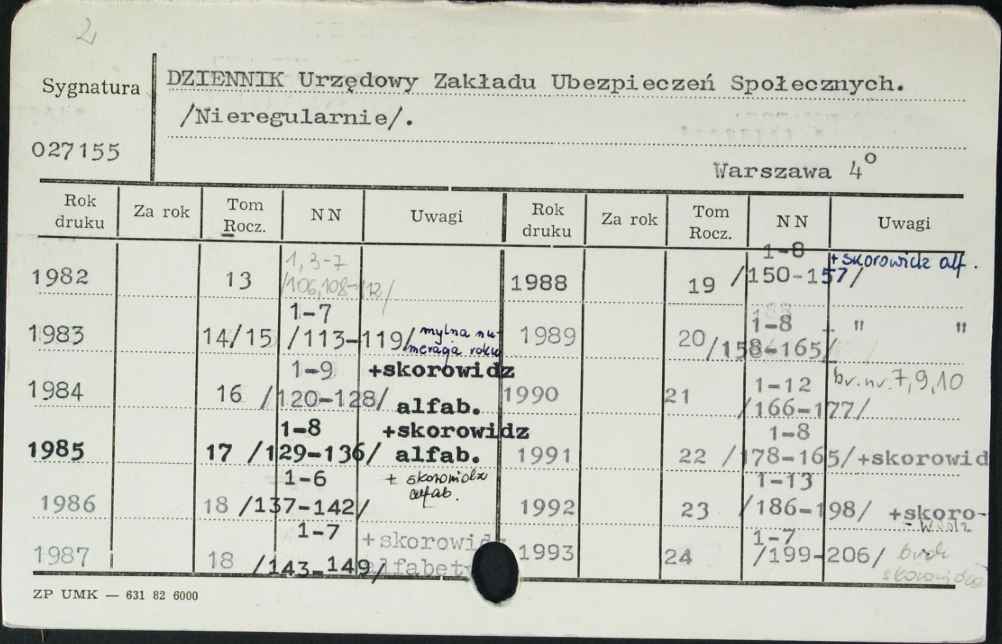 2
Sygnatura
DZIENNIK Urzędowy Zakładu Ubezpieczeń Społecznych.
/Nieregularnie/.
027155
Warszawa 4°
Rok druku Za rok Tom Rocz. NN Uwagi Rok druku Za rok Tom Rocz. NN Uwagi
1982 13 1,3-7 /106,108-112/
1983 14/15 1-7 /113-119/ mylna numeracja roku
1984 16 1-9 /120-128/ +skorowidz alfab.
1985 17 1-8 /129-136/ +skorowidz alfab.
1986 18 1-6 /137-142/ + skorowidz alfab.
1987 18 1-7 /143-149/ +skorowidz alfabet
1988 19 1-8 /150-157/ +skorowidz alf.
1989 20 1-8 /158-165/ - " "
1990 21 1-12 /166-177/ br.nr.7,9,10
1991 22 1-8 /178-165/ +skorowid
1992 23 1-13 /186-198/ +skoro-widz
1993 24 1-7 /199-206/ brak skorowidza
ZP UMK — 631 82 6000